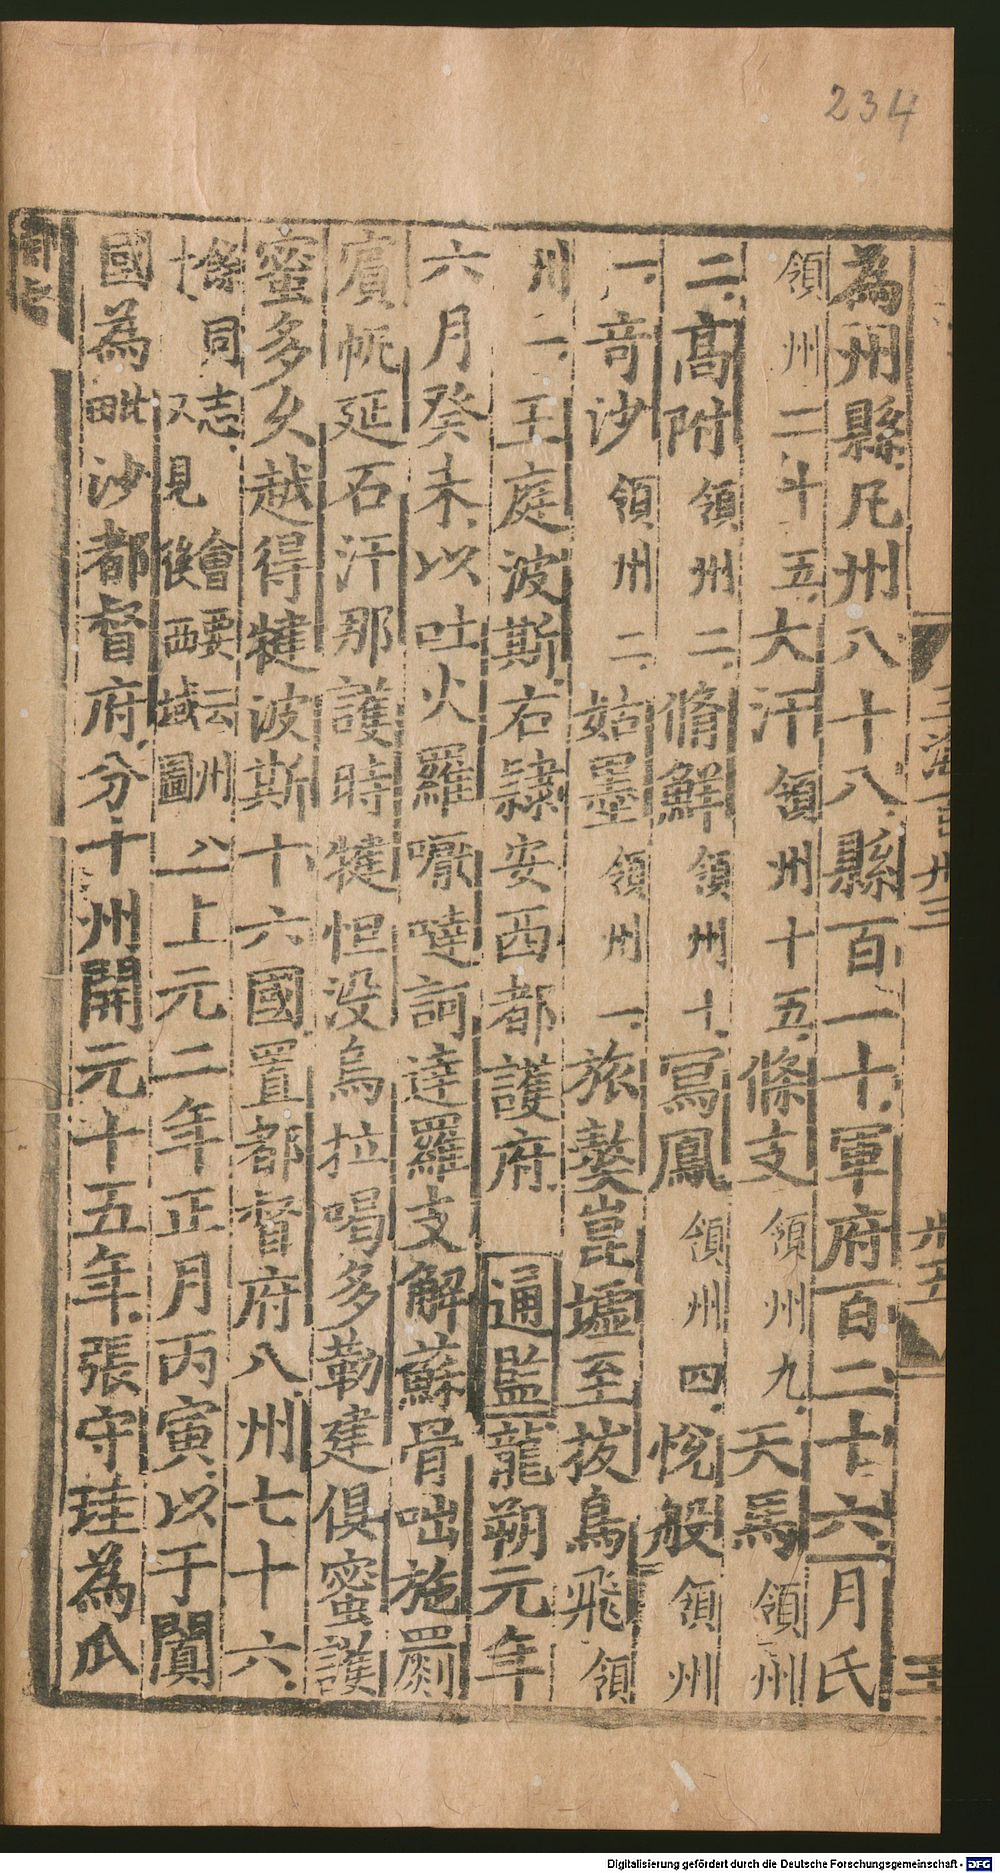 234
為州縣凡州八十八縣百一十軍府百二十六月氏
領州二十五大汗領州十五條支領州九天馬領州
二高附領州二脩鮮領州十寫鳳領州四悅般領州
一竒沙領州二姑墨領州一旅獒崑墟至拔鳥飛領
州一王庭波斯右隷安西都護府通監龍朔元年
六月癸未以吐火羅嚈噠訶達羅支解蘇骨咄施罽
賓帆延石汗那護時犍怛没烏拉喝多勒建俱蜜護
蜜多久越得犍波斯十六國置都督府八州七十六
條同志會要云州
十又見後西域圖
八上元二年正月丙寅以于闐
國為毗沙都督府分十州開元十五年張守珪為瓜
Digitalisierung gefördert durch die Deutsche Forschungsgemeinschaft - DFG